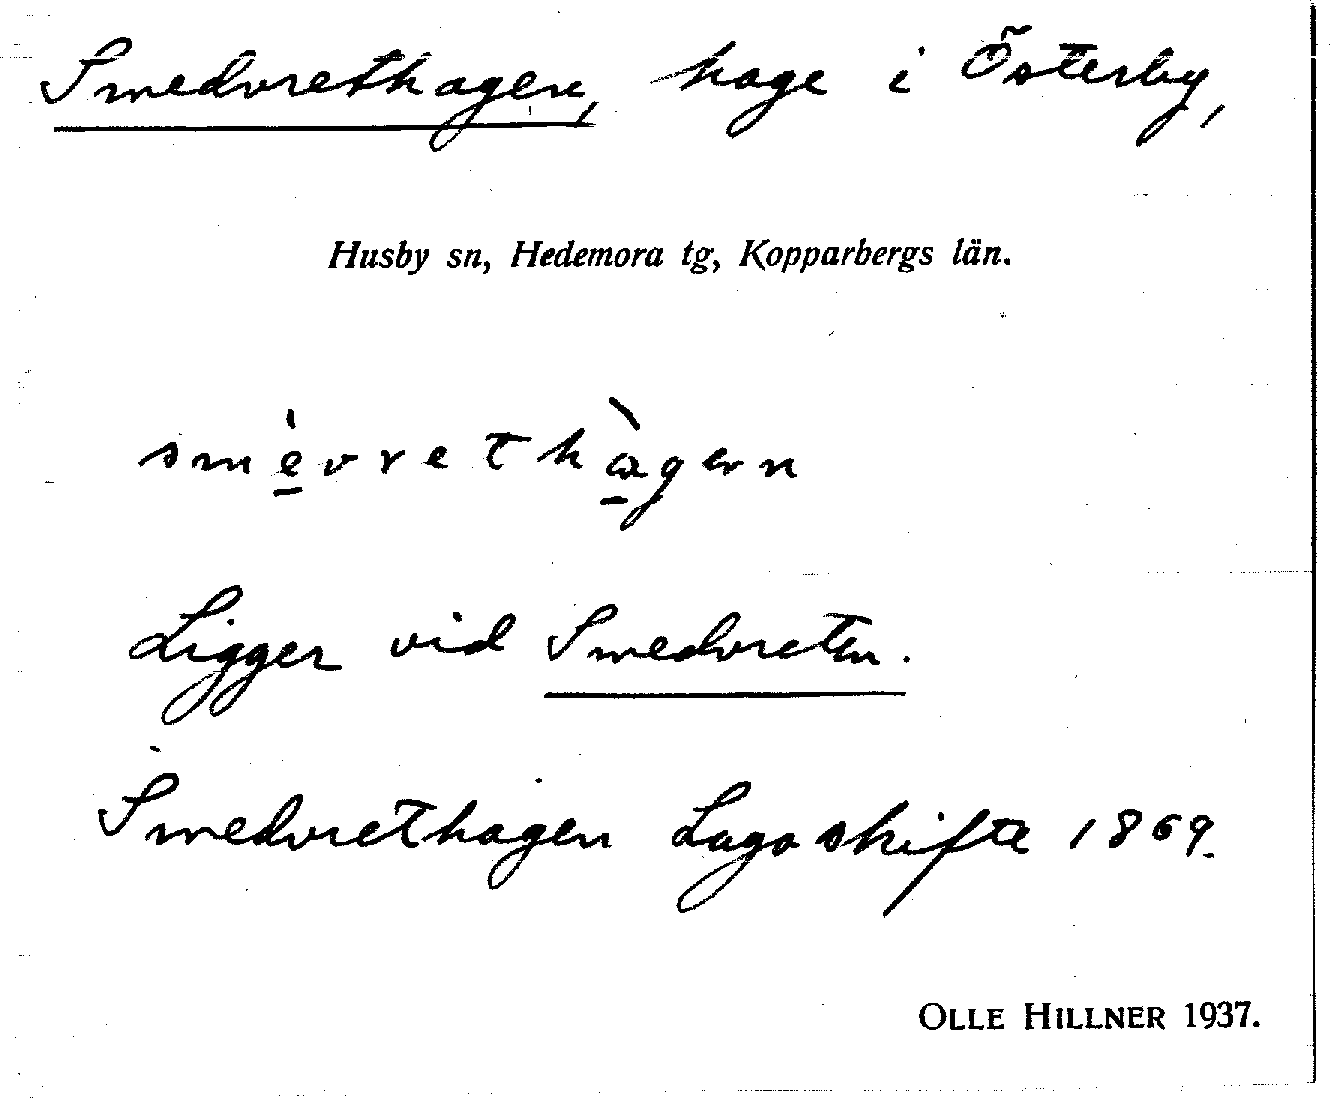 Smedvrethagen, hage i Österby,
Husby sn, Hedemora tg, Kopparbergs län.
smèvrethàgen
Ligger vid Smedvreten.
Smedvrethagen Lagaskifte 1869.
OLLE HILLNER 1937.